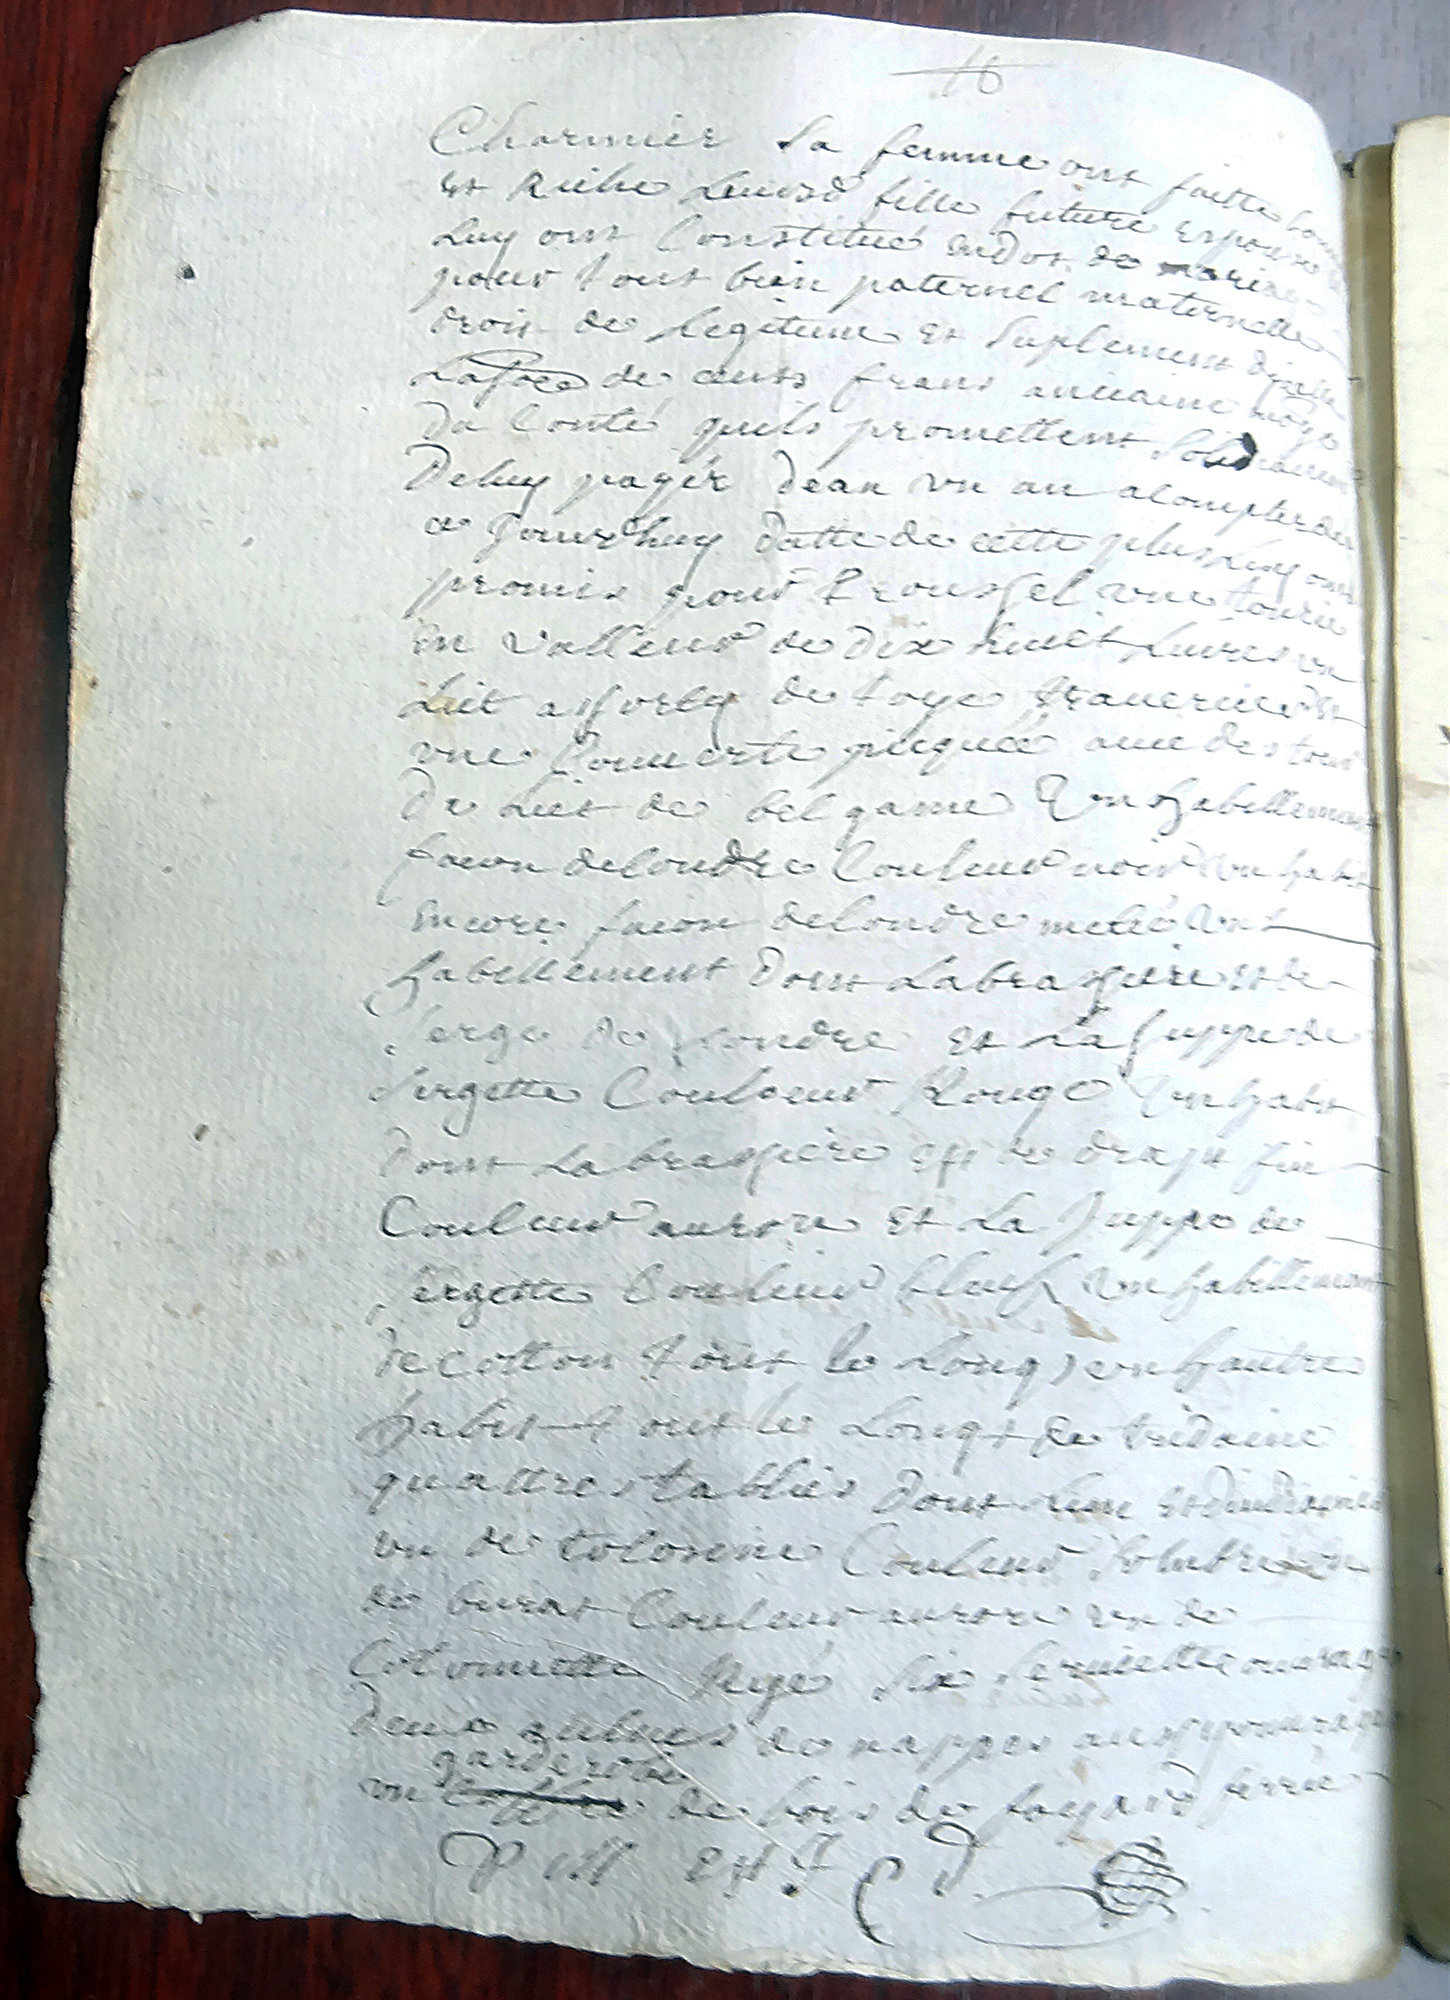 16
Charmier sa femme ont faitte bonne
et Riche leurd fille future Espouse
Luy ont Constitué En Dot de mariage
pour tout bien paternel maternelle
droit de Legitime et Suplement dicelle
La soe de cents frans anciaine monoye
Du Conté quils promettent Solidairement
De luy payér dean un an a Compter de
ce Jourdhuy datte de cette plus Luy ont
promis pour Troussel une
En valleur de dix huict Livres un
Lict assorty de toye traversier et
une Couverte picquée avec des tour
De Lict de bel game un habillement
facon de Londre Couleur noir un habit
Encore facon de Londre melé un
habillement dont La brassiere est de
serge de Londre et La Juppe de
sergette Couleur Rouge un habit
dont La brassiere est de drapt fin
Couleur aurore et La Juppe de
sergette Couleur bleuf un habillement
de cotton tout le Long un hautre
habit tout le Longt de tridaine
quattre tablier dont lun est dindienne
un de Colonne Couleur Sombre un
de burat Couleur aurore un de
Colonnette Reyé Six serviette ouvragé
deux aulnes de nappes aussy ouvragé
garderobe
un de bois de foyard ferrée